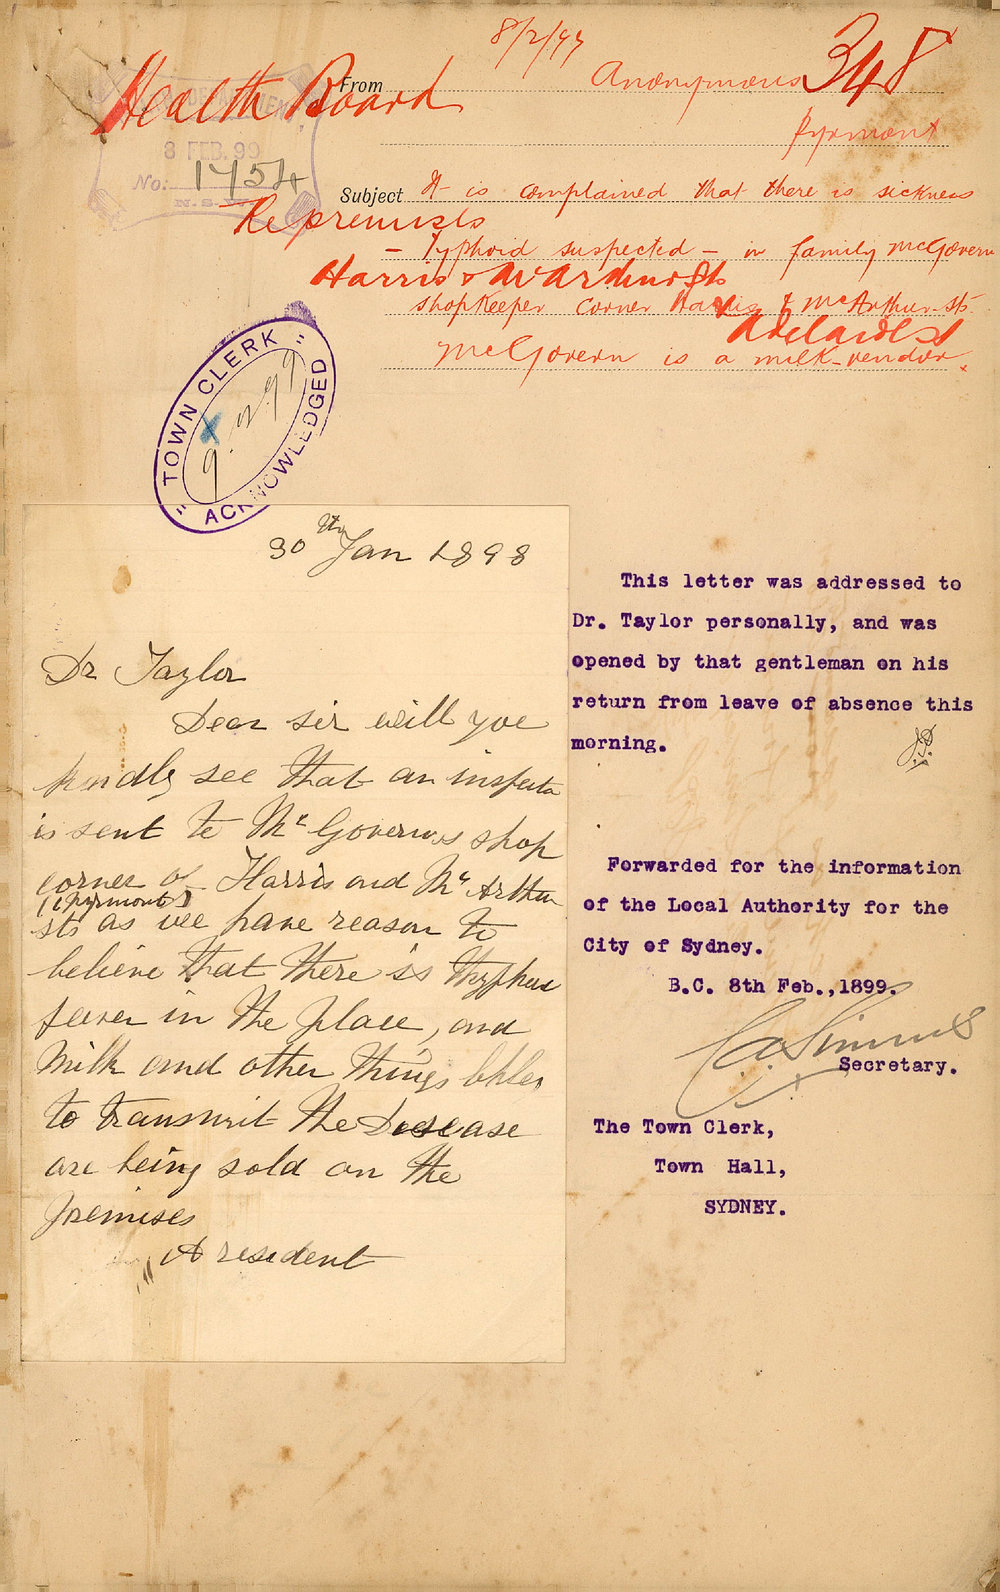 8/2/99
348
Health Board
From Anonymous
Pyrmont
8 FEB. 99
No: 1754
N.S.W.
Subject It is complained that there is sickness
Re premises
- Typhoid suspected - in family McGovern
Harris &
shopkeeper corner Harris & McArthur sts.
Adelaide St
McGovern is a milk-vendor.
"TOWN CLERK"
9.2.99
ACKNOWLEDGED
30th Jan 1898
Dr Taylor
Dear sir will you
kindly see that an inspector
is sent to Mc Governs shop
corner of Harris and Mc Arthur
(Pyrmont)
sts as we have reason to
believe that there is thyphus
feever in the place, and
milk and other things
to transmit the Disease
are being sold on the
premises
A resident
This letter was addressed to
Dr. Taylor personally, and was
opened by that gentleman on his
return from leave of absence this
morning.
Forwarded for the information
of the Local Authority for the
City of Sydney.
B.C. 8th Feb.,1899.
Secretary.
The Town Clerk,
Town Hall,
SYDNEY.